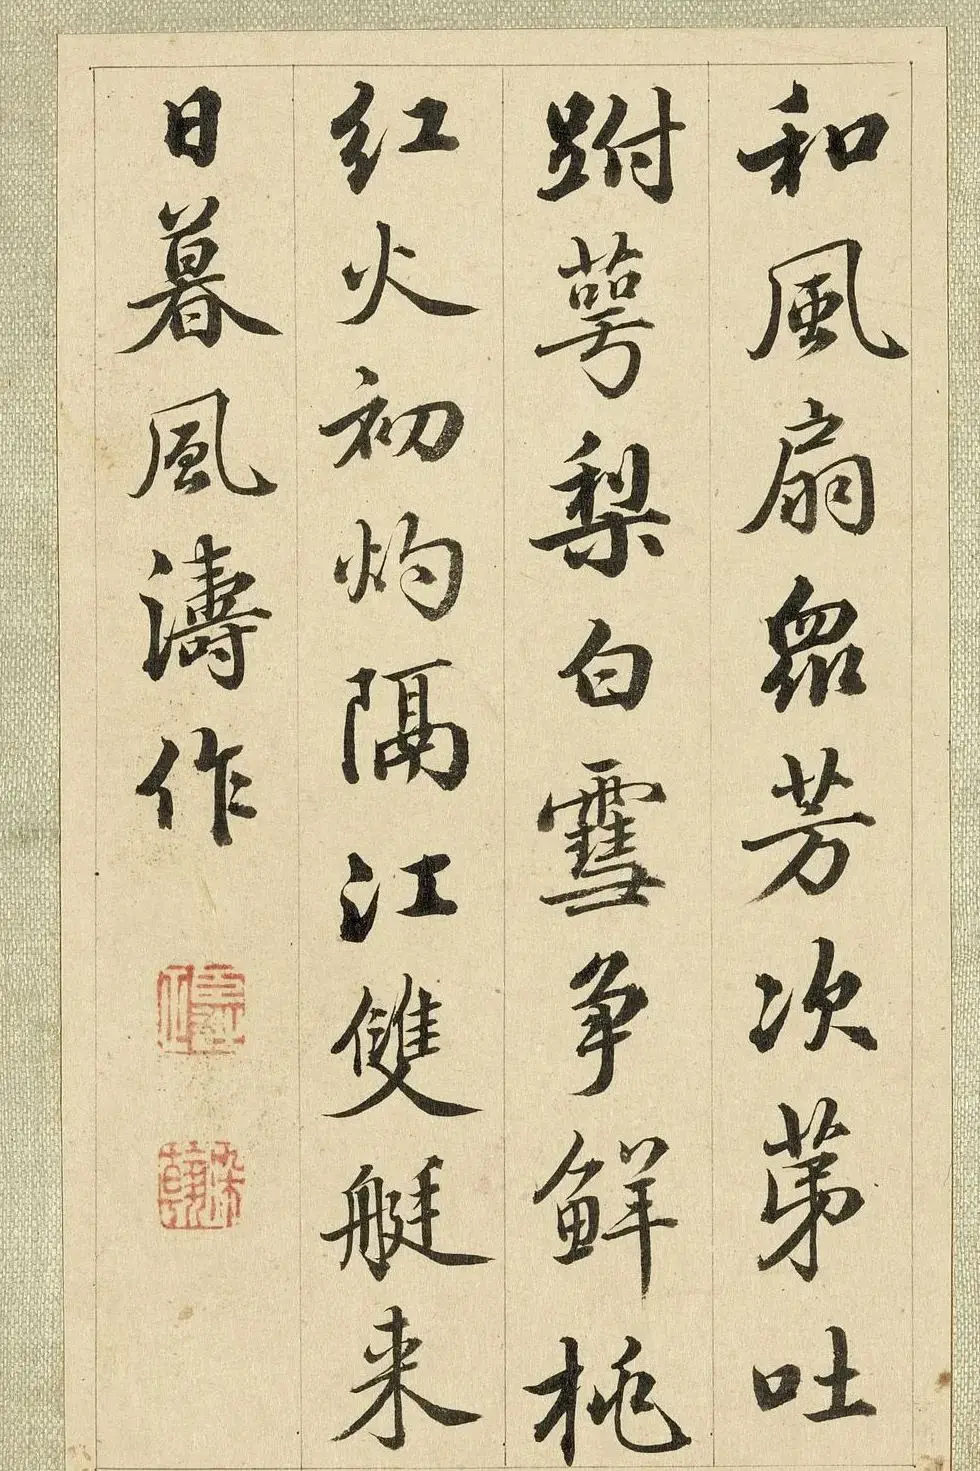 和風扇眾芳次苐吐
跗萼梨白雪争鮮桃
红火初灼隔江雙艇来
日暮風濤作